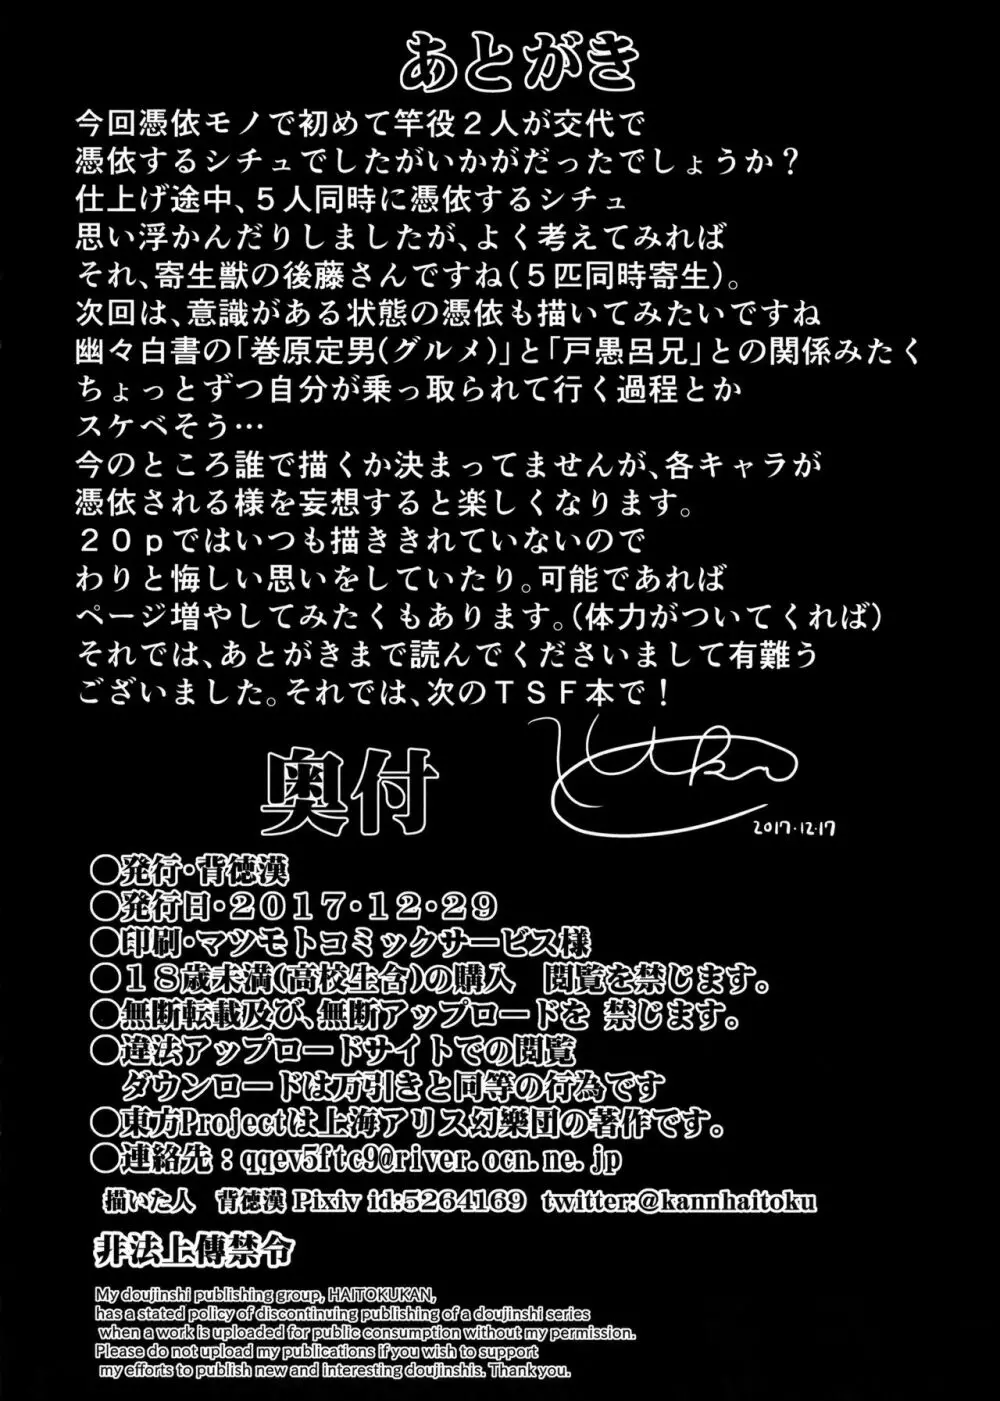 あとがき
今回憑依モノで初めて竿役２人が交代で
憑依するシチュでしたがいかがだったでしょうか？
仕上げ途中、５人同時に憑依するシチュ
思い浮かんだりしましたが、よく考えてみれば
それ、寄生獣の後藤さんですね（５匹同時寄生）。
次回は、意識がある状態の憑依も描いてみたいですね
幽々白書の「巻原定男（グルメ）」と「戸愚呂兄」との関係みたく
ちょっとずつ自分が乗っ取られて行く過程とか
スケベそう…
今のところ誰で描くか決まってませんが、各キャラが
憑依される様を妄想すると楽しくなります。
２０ｐではいつも描ききれていないので
わりと悔しい思いをしていたり。可能であれば
ページ増やしてみたくもあります。（体力がついてくれば）
それでは、あとがきまで読んでくださいまして有難う
ございました。それでは、次のＴＳＦ本で！
奥付
2017.12.17
○発行・背徳漢
○発行日・２０１７・１２・２９
○印刷・マツモトコミックサービス様
○１８歳未満（高校生含）の購入　閲覧を禁じます。
●無断転載及び、無断アップロードを 禁じます。
○違法アップロードサイトでの閲覧
ダウンロードは万引きと同等の行為です
○東方Projectは上海アリス幻樂団の著作です。
○連絡先：qqev5ftc9@river.ocn.ne.jp
描いた人　背徳漢 Pixiv id:5264169 twitter:@kannhaitoku
非法上傳禁令
My doujinshi publishing group, HAITOKUKAN,
has a stated policy of discontinuing publishing of a doujinshi series
when a work is uploaded for public consumption without my permission.
Please do not upload my publications if you wish to support
my efforts to publish new and interesting doujinshis. Thank you.